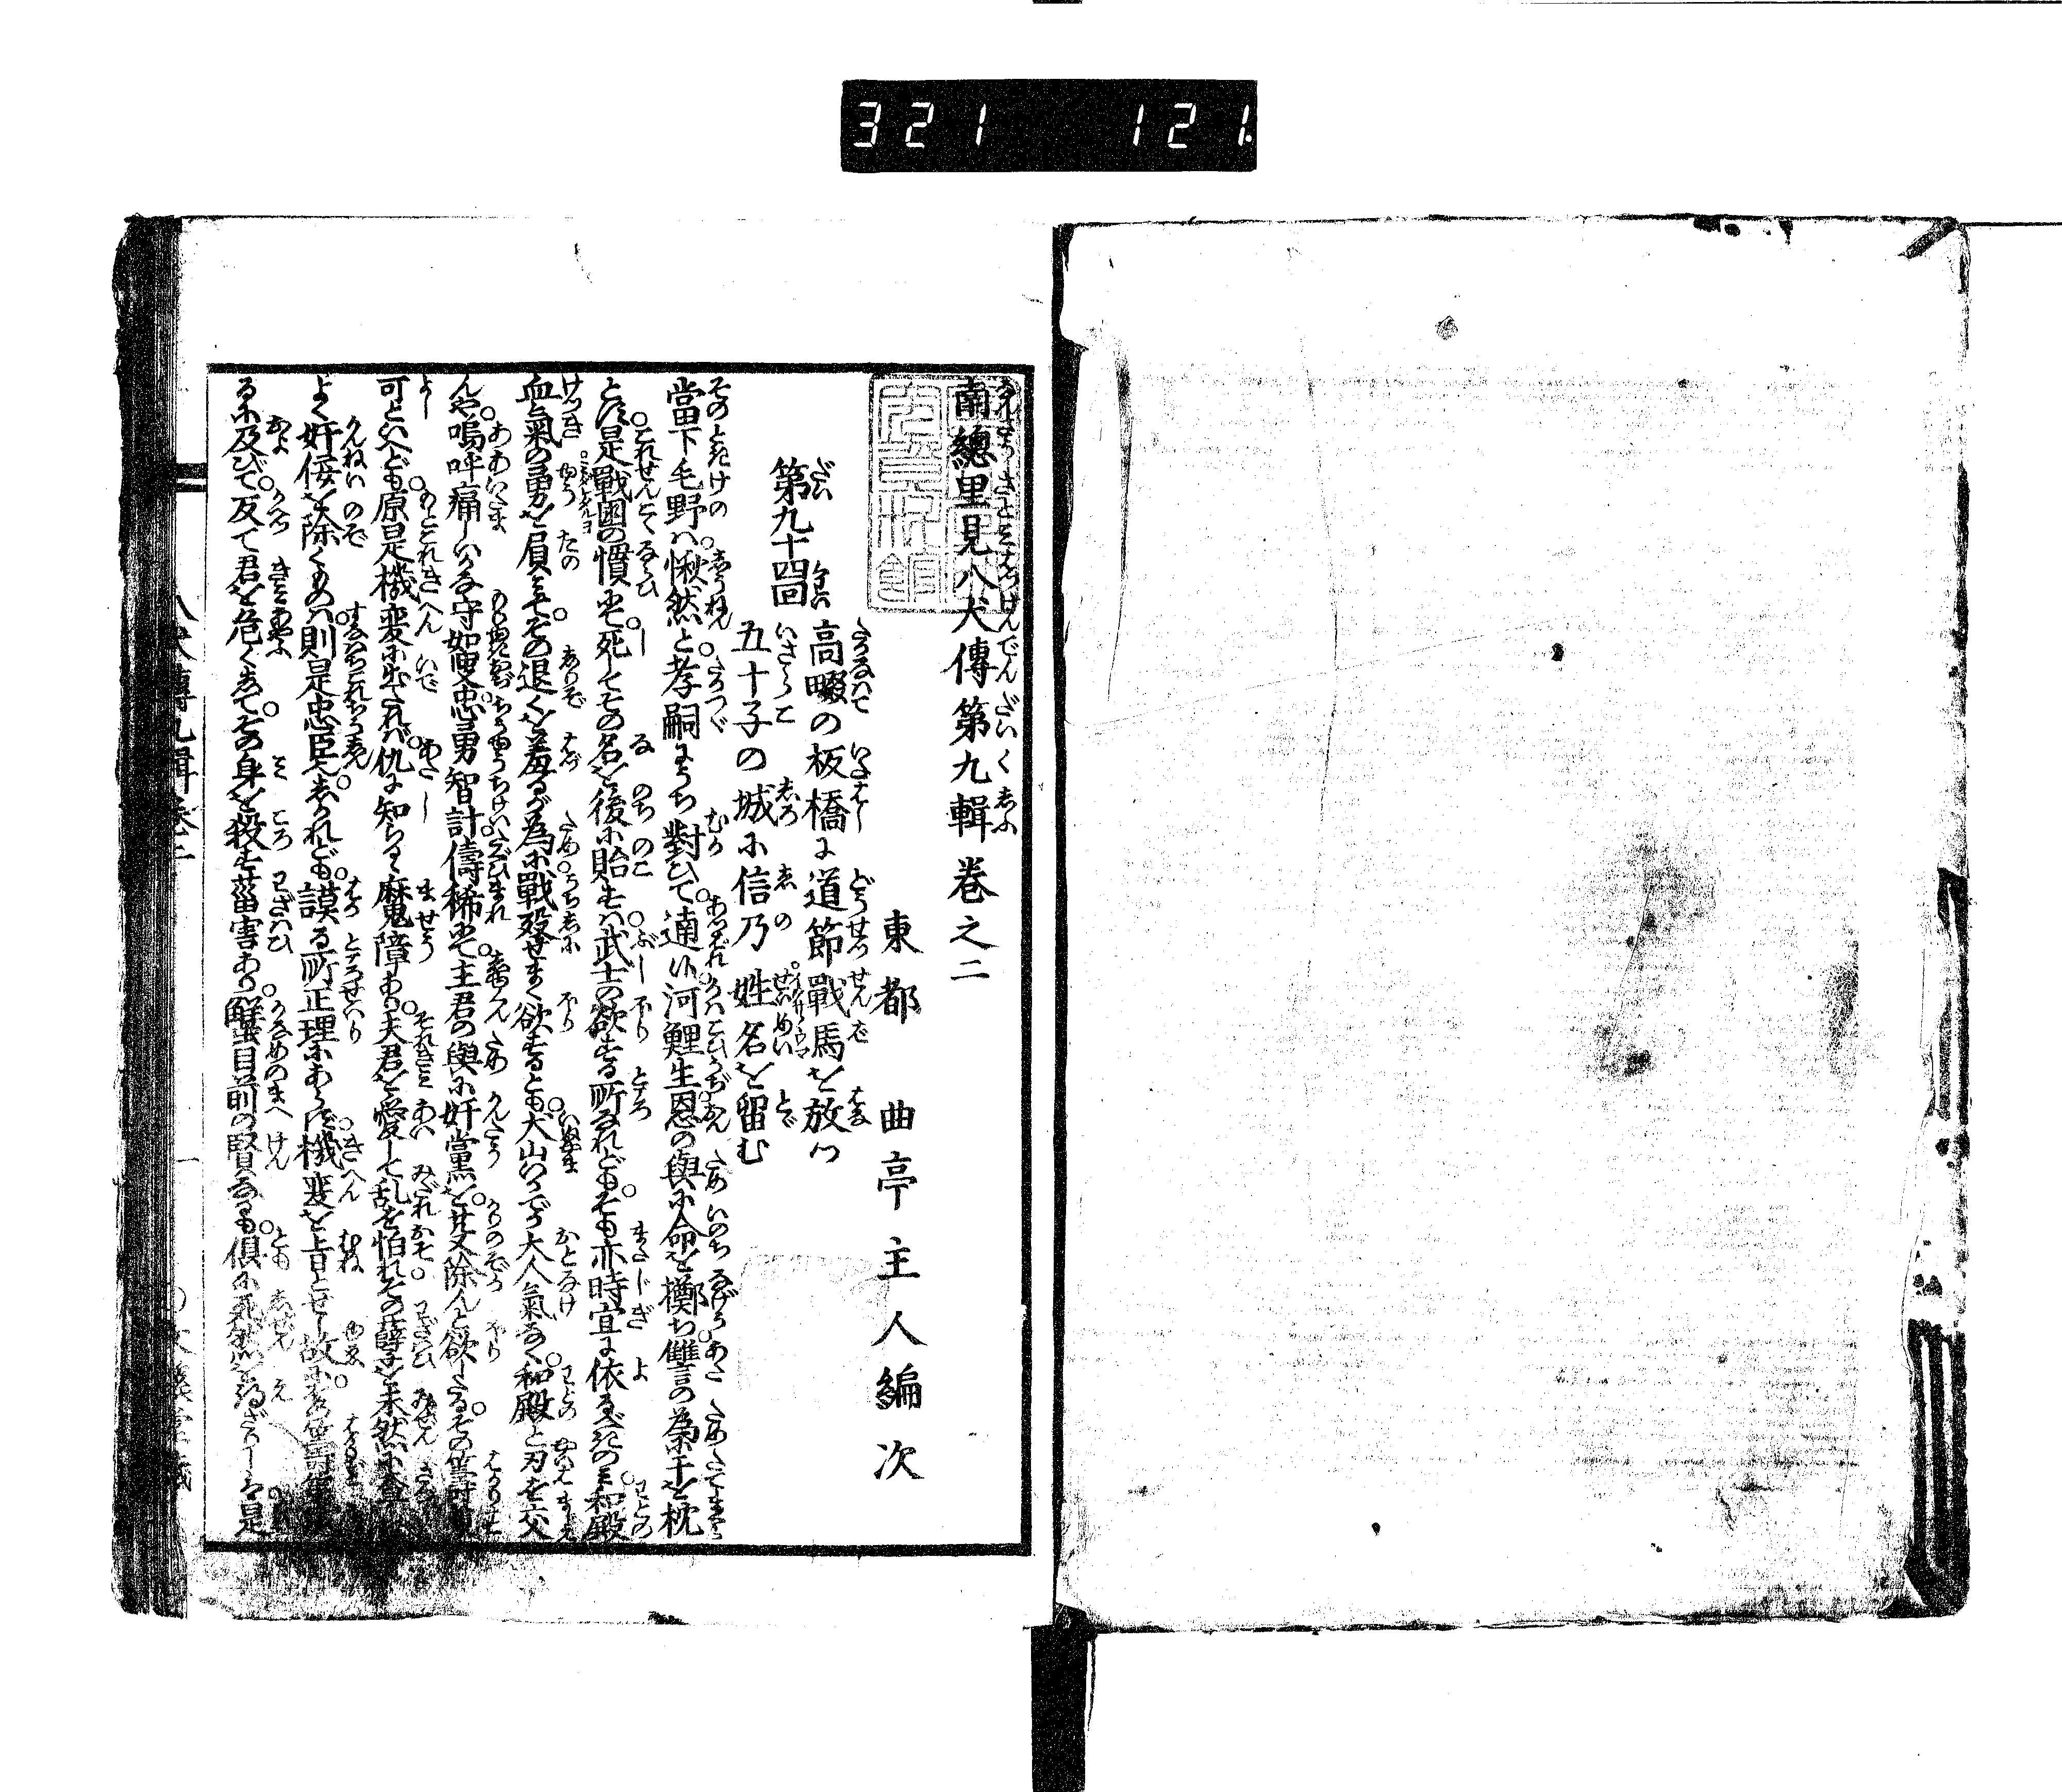 321 121
南總里見八犬傳第九輯卷之二
東都 曲亭主人編次
第九十四回
高畷の板橋に道節戰馬を放つ
五十子の城に信乃姓名を留む
當下毛野は愀然と。孝嗣にうち對ひて。遖れ河鯉生恩の與に命を擲ち讐の為に干を枕
とす。是戰國の慣にて。死してその名を後に貽すは。武士の欲する所なれども。そも亦時宜に依るべきのみ。和殿
血氣の勇を屓みて。その退くを羞るが為に。戰歿せまく欲するとも。犬山いかでか大人氣なく。和殿と刃を交
んや。嗚呼痛しいかな守如叟。忠勇智計儔稀にて。主君の與に奸黨を。芟除んと欲したる。その籌
可といへども。原是機変に出たれば。仇に知られて魔障あり。夫君を愛して乱を怕れ。その孽を未然に
よく奸佞を除くものは。則是忠臣也。しかれども。謨る所正理にあらず。機変を旨とせし故に。その籌
るに及びて。反て君を危くして。その身を殺す菑害あり。蟹目前の賢なるも。倶に死然を得ざりしは。是